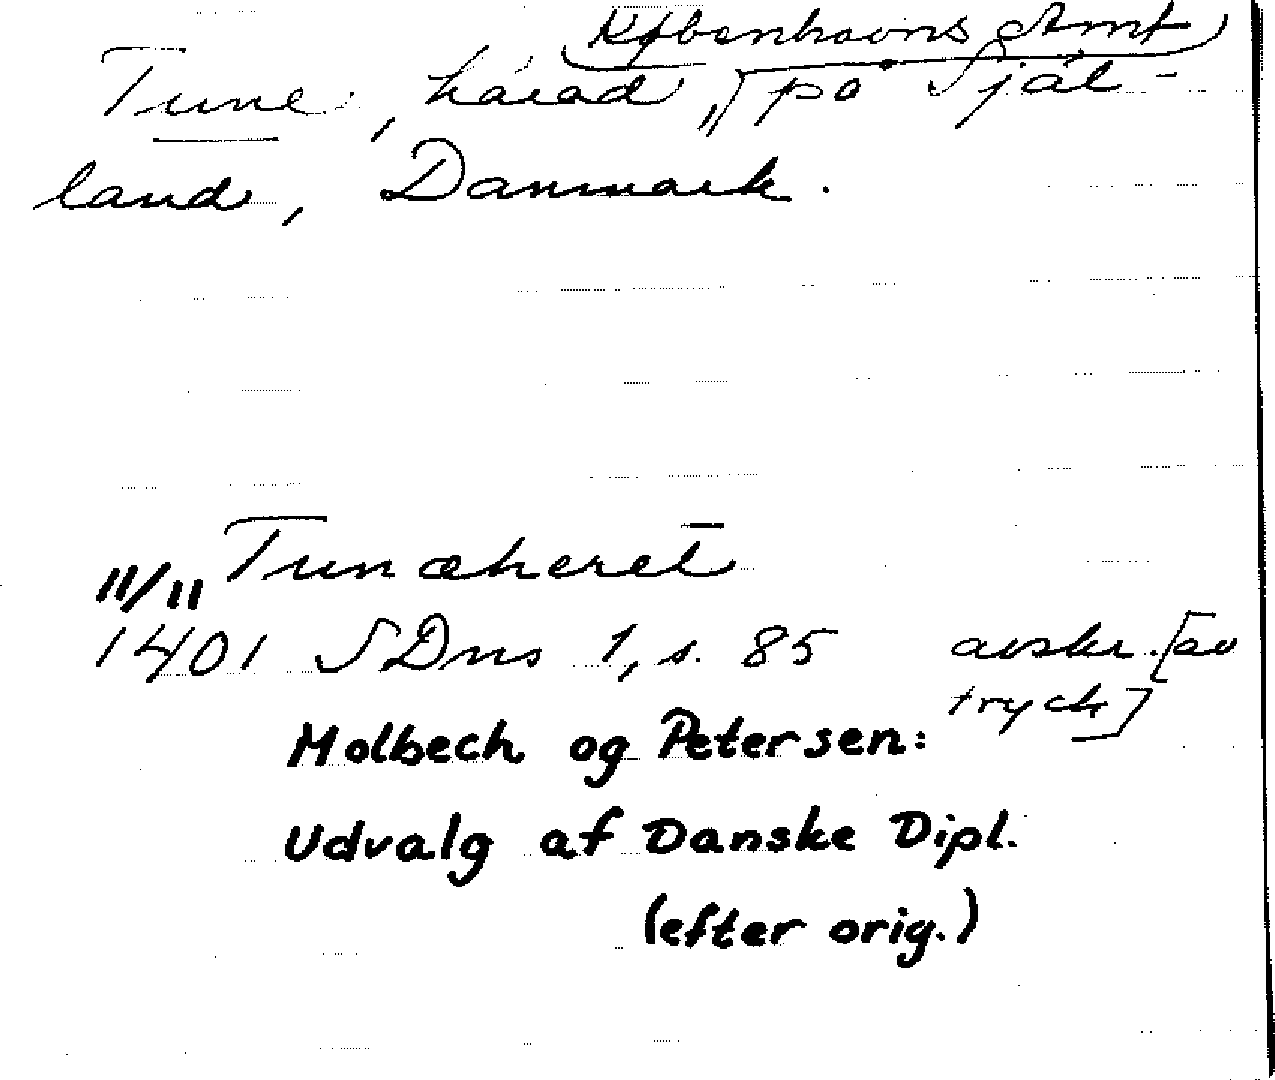 Københavns Amt
Tune, härad, på Själ-
land, Danmark.
Tunæheret
11/11
1401 SDns 1, s. 85 avskr. [av
tryck]
Molbech og Petersen:
Udvalg af Danske Dipl.
(efter orig.)